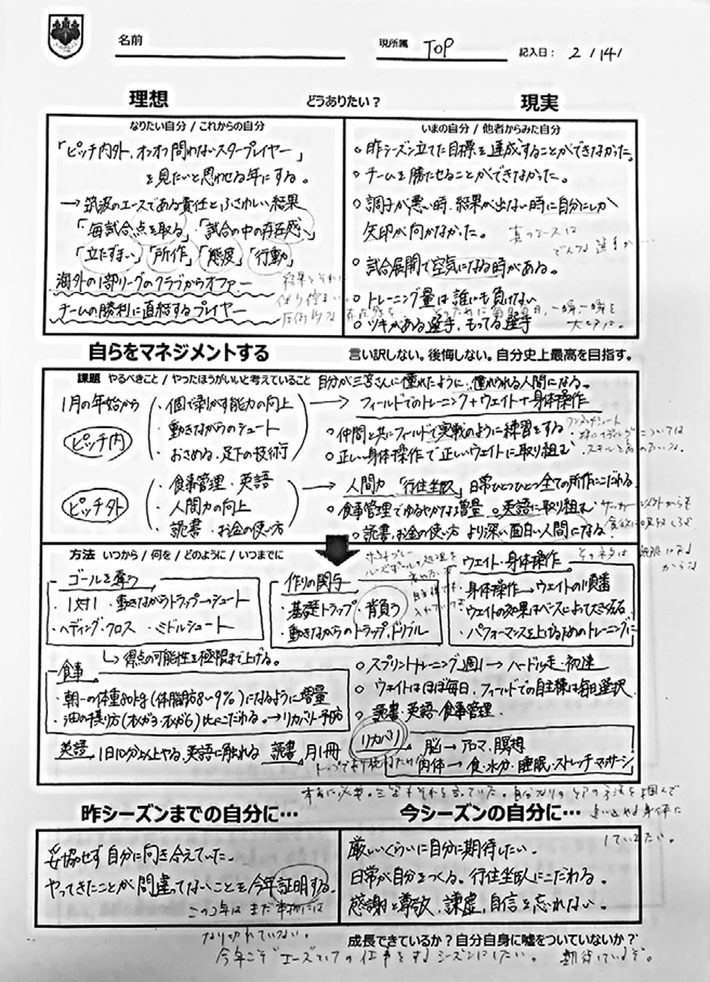 名前
現所属 TOP
記入日: 2 / 14 /
理想
どうありたい？
現実
なりたい自分 / これからの自分
「ピッチ内外、オンオフ問わないスタープレイヤー」
を見たいと思わせる年にする。
→ 筑波のエースである責任とふさわしい結果
「毎試合点を取る」「試合の中の存在感」
「立たずまい」「所作」「態度」「行動」
海外の1部リーグのクラブからオファー
チームの勝利に直結するプレイヤー
いまの自分 / 他者からみた自分
○昨シーズン立てた目標を達成することができなかった。
○チームを勝たせることができなかった。
○調子が悪い時、結果が出ない時に自分にしか
矢印が向かなかった。
真のエースは
どんな選手か…
○試合展開で空気になる時がある。
○トレーニング量は誰にも負けない
○ツキがある選手、もってる選手
自らをマネジメントする
言い訳しない。後悔しない。自分史上最高を目指す。
課題 やるべきこと / やったほうがいいと考えていること
自分が三笘さんに憧れたように、憧れられる人間になる。
1月の年始から
ピッチ内
・個で剥がす能力の向上
・動きながらのシュート
・おさめる、足下の技術
→ フィールドでのトレーニング+ウェイト+身体操作
○仲間と共にフィールドで実戦のように練習をする
○正しい身体操作で正しいウェイトに取り組む
ピッチ外
・食事管理・英語
・人間力の向上
・読書・お金の使い方
→ 人間力「行住坐臥」日常ひとつひとつ全ての所作にこだわる。
○食事管理でゆるやかな増量 ○英語に取り組む
○読書、お金の使い方 より深い面白い人間になる！
方法 いつから / 何を / どのように / いつまでに
ゴールを奪う
・1対1 ・動きながらトラップ→シュート
・ヘディング・クロス ・ミドルシュート
↳ 得点の可能性を極限まで上げる。
作りの関与
・基礎トラップ・背負う
・動きながらのトラップ、ドリブル
ウェイト・身体操作
・身体操作→ウェイトの順番
・パフォーマンスを上げるためのトレーニングに
食事
・朝一の体重80kg(体脂肪8〜9%)になるように増量
→リカバリー予防
○スプリントトレーニング週1→ハードル走・初速
○ウェイトはほぼ毎日、フィールドでの自主練は毎日選択
○読書・英語・食事管理
英語 1日10分以上やる、英語に触れる 読書 月1冊
リカバリ
脳→アロマ、瞑想
肉体→食・水分・睡眠・ストレッチ・マッサージ
昨シーズンまでの自分に…
妥協せず自分に向き合えていた。
やってきたことが間違ってないことを今年証明する。
この2年はまだ本物には
なり切れていない。
今シーズンの自分に…
していきたい。
厳しいくらいに自分に期待したい。
日常が自分をつくる。行住坐臥にこだわる。
感謝と尊敬、謙虚、自信を忘れない。
成長できているか？自分自身に嘘をついていないか？
今年こそエースとしての仕事をするシーズンにしたい。 期待しているぞ。